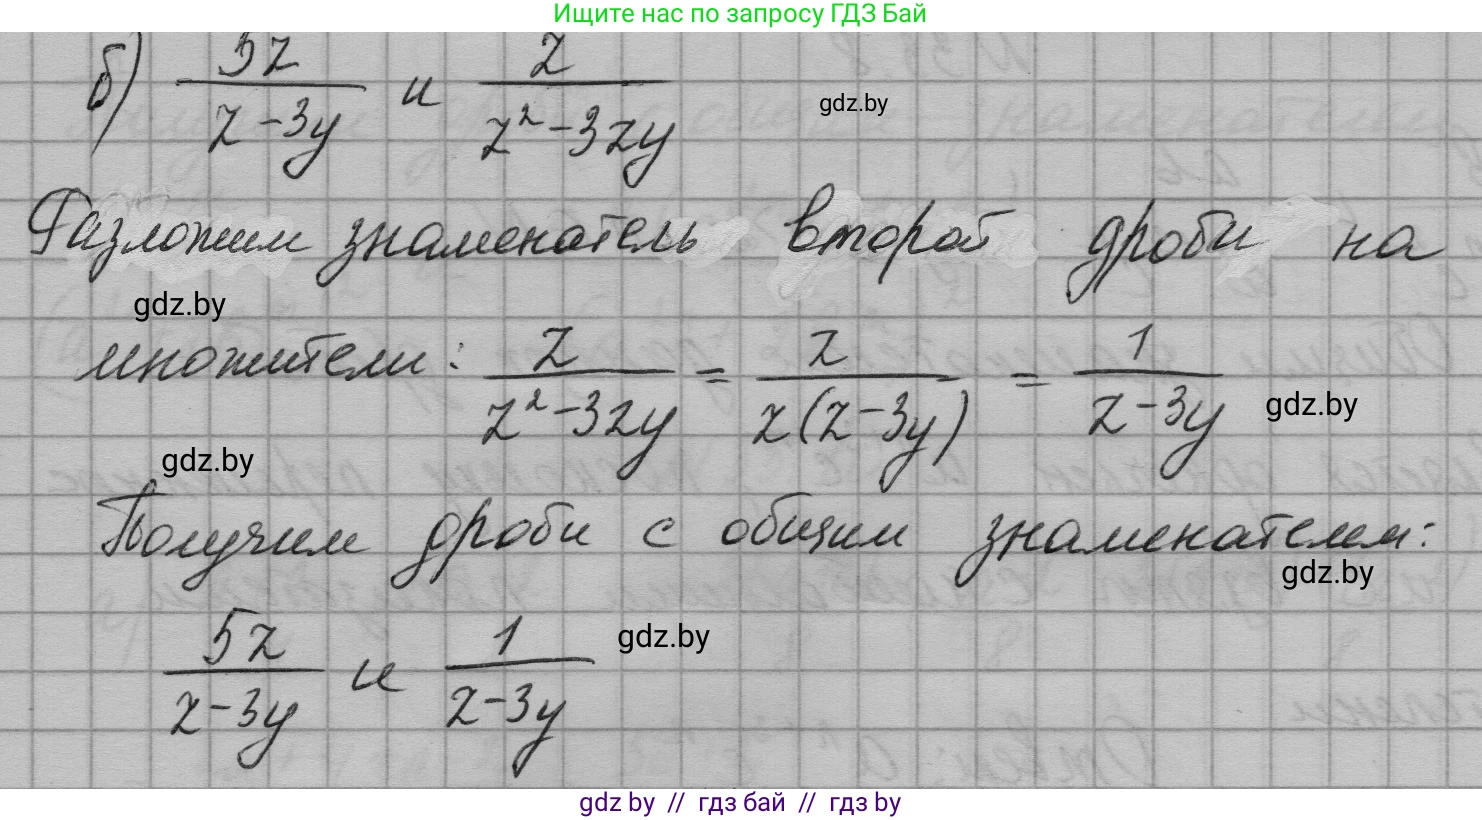 Ищите нас по запросу ГДЗ Бай
б) 5z/(z-3y) и z/(z²-3zy)
gdz.by
Разложим знаменатель второй дроби на
gdz.by
множители: z/(z²-3zy) = z/(z(z-3y)) = 1/(z-3y)
gdz.by
gdz.by
Получим дроби с общим знаменателем:
gdz.by
5z/(z-3y) и 1/(z-3y)
gdz.by
gdz by // гдз бай // гдз by